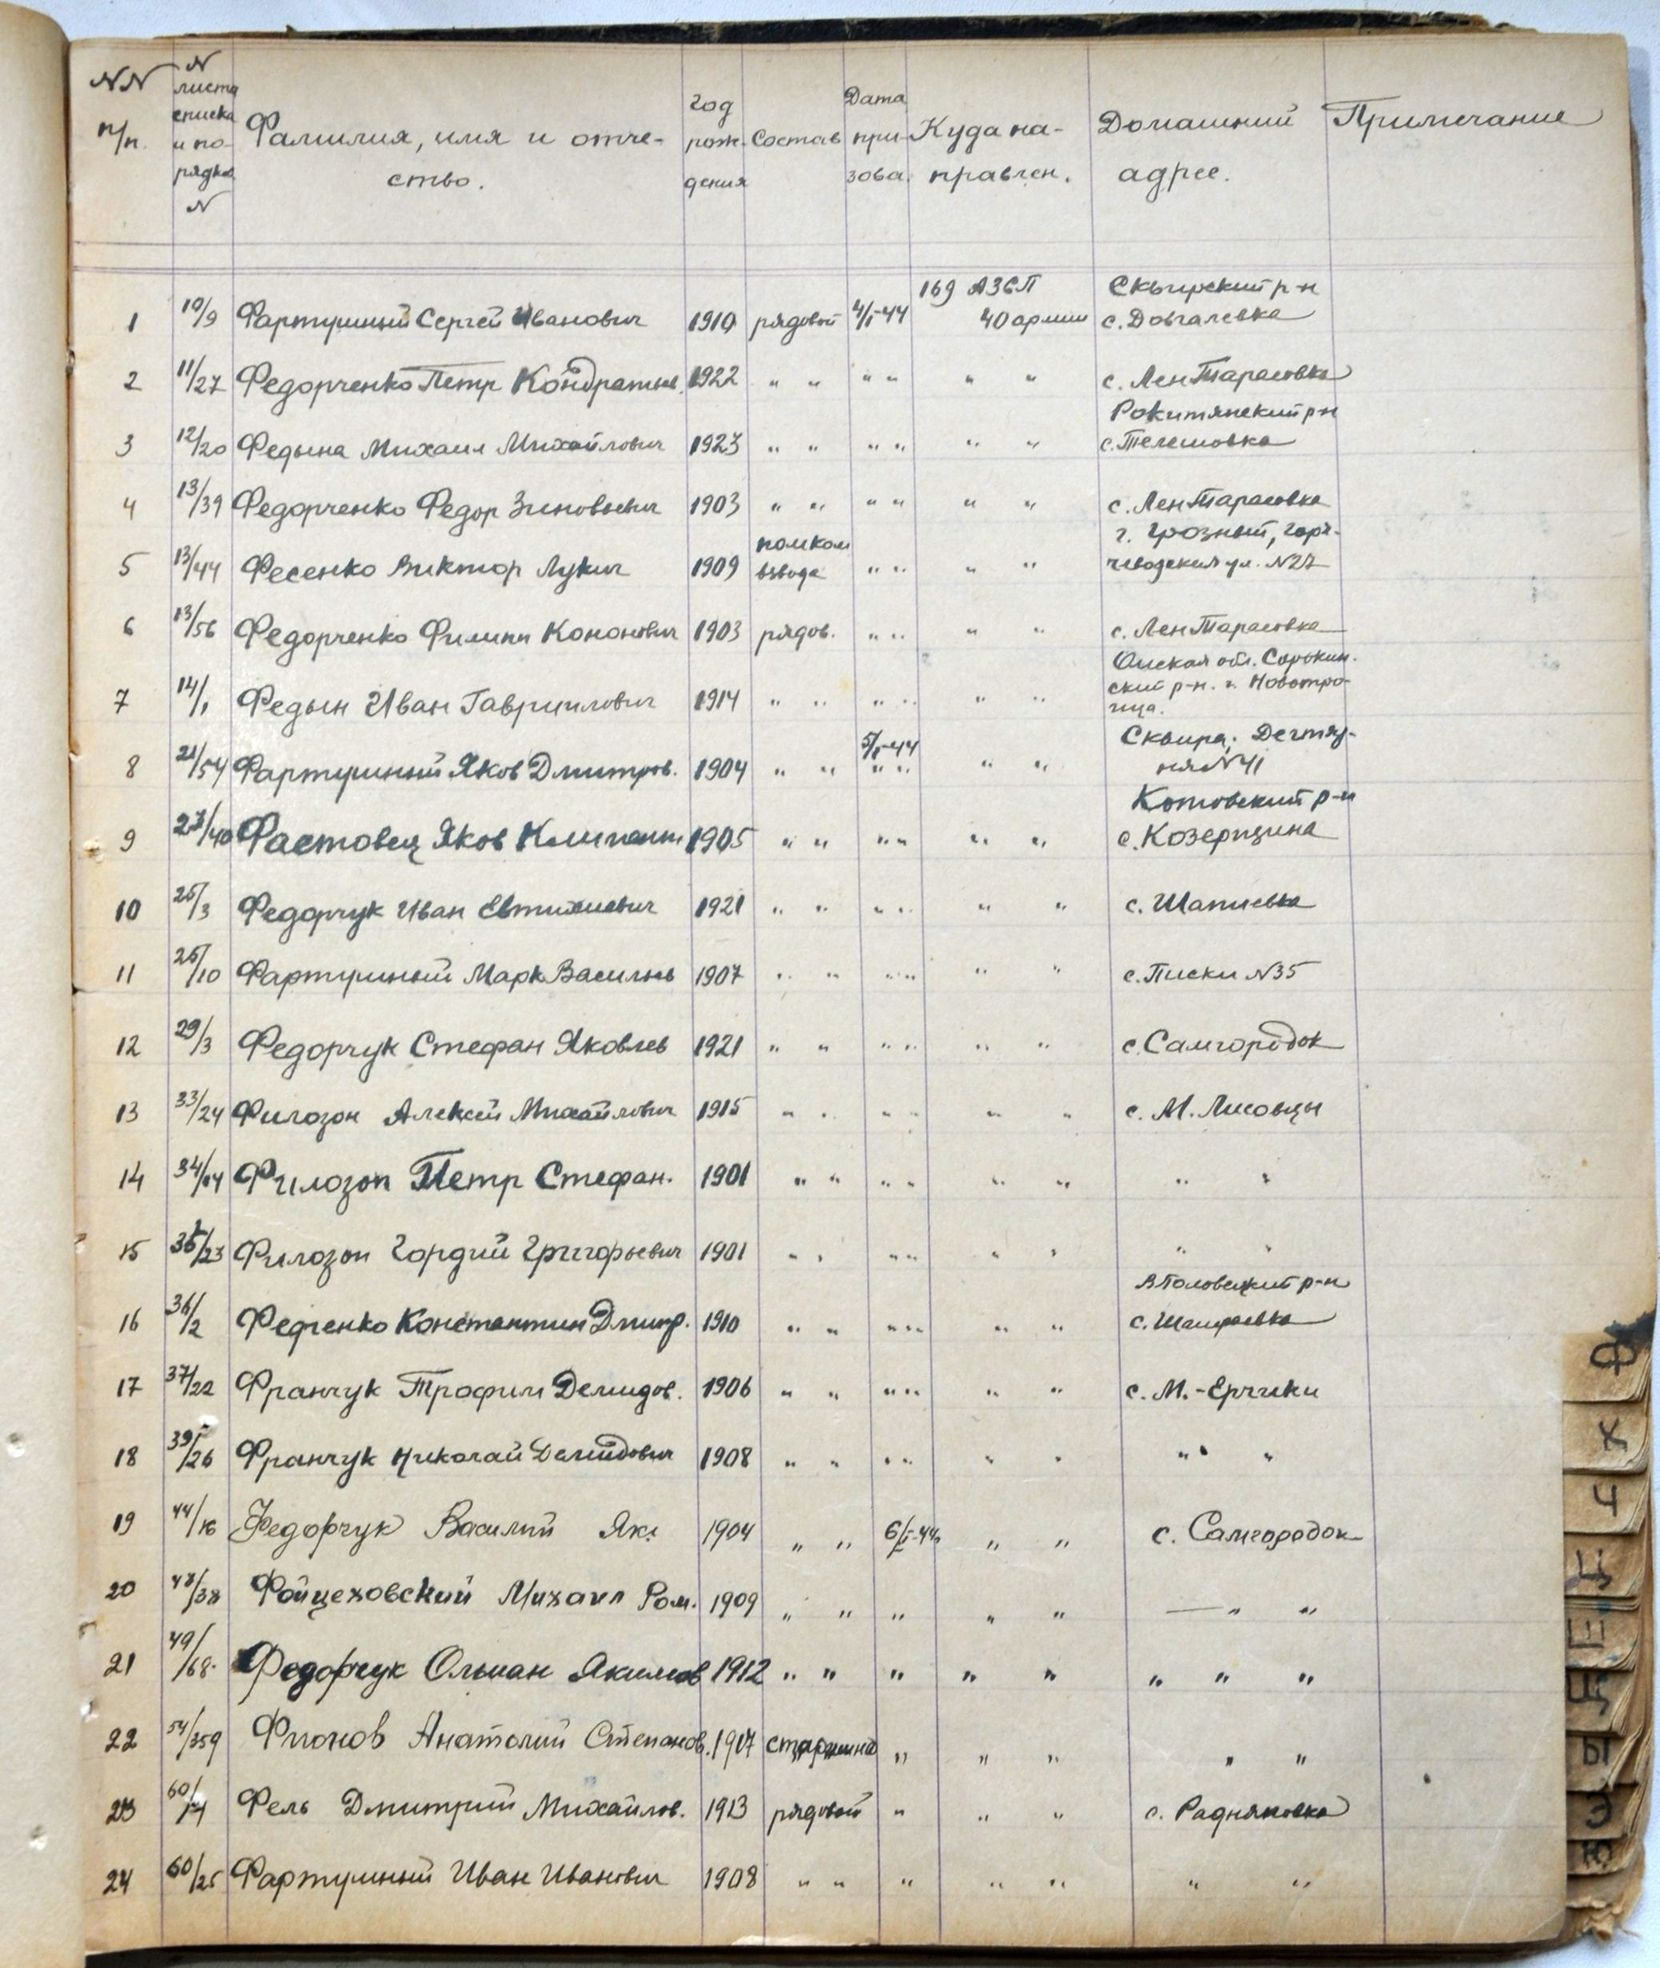 NN п/п. N листа списка и по-рядков. N Фамилия, имя и отче-ство. Год рож-дения Состав Дата при-зова. Куда на-правлен. Домашний адрес. Примечание
1 10/9 Фартушный Сергей Иванович 1910 рядовой 4/I-44 169 АЗСП 40 армии Сквирский р-н с. Довгалевка
2 11/27 Федорченко Петр Кондратье. 1922 " " " " " " с. Лен Тарасовка
3 12/20 Федына Михаил Михайлович 1923 " " " " " " Рокитянский р-н с. Телешовка
4 13/39 Федорченко Федор Зиновьевич 1903 " " " " " " с. Лен Тарасовка
5 13/44 Фесенко Виктор Лукич 1909 помком взвода " " " " г. Грозный, Горя-чеводская ул. N27
6 13/56 Федорченко Филипп Кононович 1903 рядов. " " " " с. Лен Тарасовка
7 14/1 Федын Иван Гавриилович 1914 " " " " " " Омская обл. Сорокин-ский р-н. г. Новотро-ица.
8 21/54 Фартушный Яков Дмитров. 1904 " " 5/I-44 " " " " Сквира, Дегтяр-ная N41
9 23/40 Фастовец Яков 1905 " " " " " " Котовский р-н с. Козерщина
10 25/3 Федорчук Иван Евтихиевич 1921 " " " " " " с. Шапиевка
11 25/10 Фартушный Марк Васильев 1907 " " " " " " с. Писки N35
12 29/3 Федорчук Стефан Яковлев 1921 " " " " " " с. Самгородок
13 33/24 Филозоп Алексей Михайлович 1915 " " " " " " с. М. Лисовцы
14 34/14 Филозоп Петр Стефан. 1901 " " " " " " " "
15 35/23 Филозоп Гордий Григорьевич 1901 " " " " " " " "
16 36/2 Федченко Константин Дмитр. 1910 " " " " " " Володарский р-н с. Шамраевка
17 37/22 Франчук Трофим Демидов. 1906 " " " " " " с. М.-Ерчики
18 39/26 Франчук Николай Демидович 1908 " " " " " " " "
19 44/16 Федорчук Василий Як. 1904 " " 6/I-44 " " с. Самгородок
20 48/38 Фойцеховский Михаил Ром. 1909 " " " " " — " "
21 49/68. Федорчук Ольян Якимов 1912 " " " " " " " "
22 54/359 Фионов Анатолий Степанов. 1917 старшина " " " " "
23 60/14 Фель Дмитрий Михайлов. 1913 рядовой " " " с. Радняновка
24 60/25 Фартушный Иван Иванович 1908 " " " " " " "
Ф
Х
Ч
Ц
Ш
Щ
Ы
Э
Ю